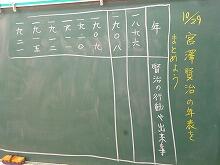 10/29
宮澤賢治の年表を
まとめよう
年
賢治の行動や出来事
一八九六
一九〇八
一九〇九
一九一五
一九二一